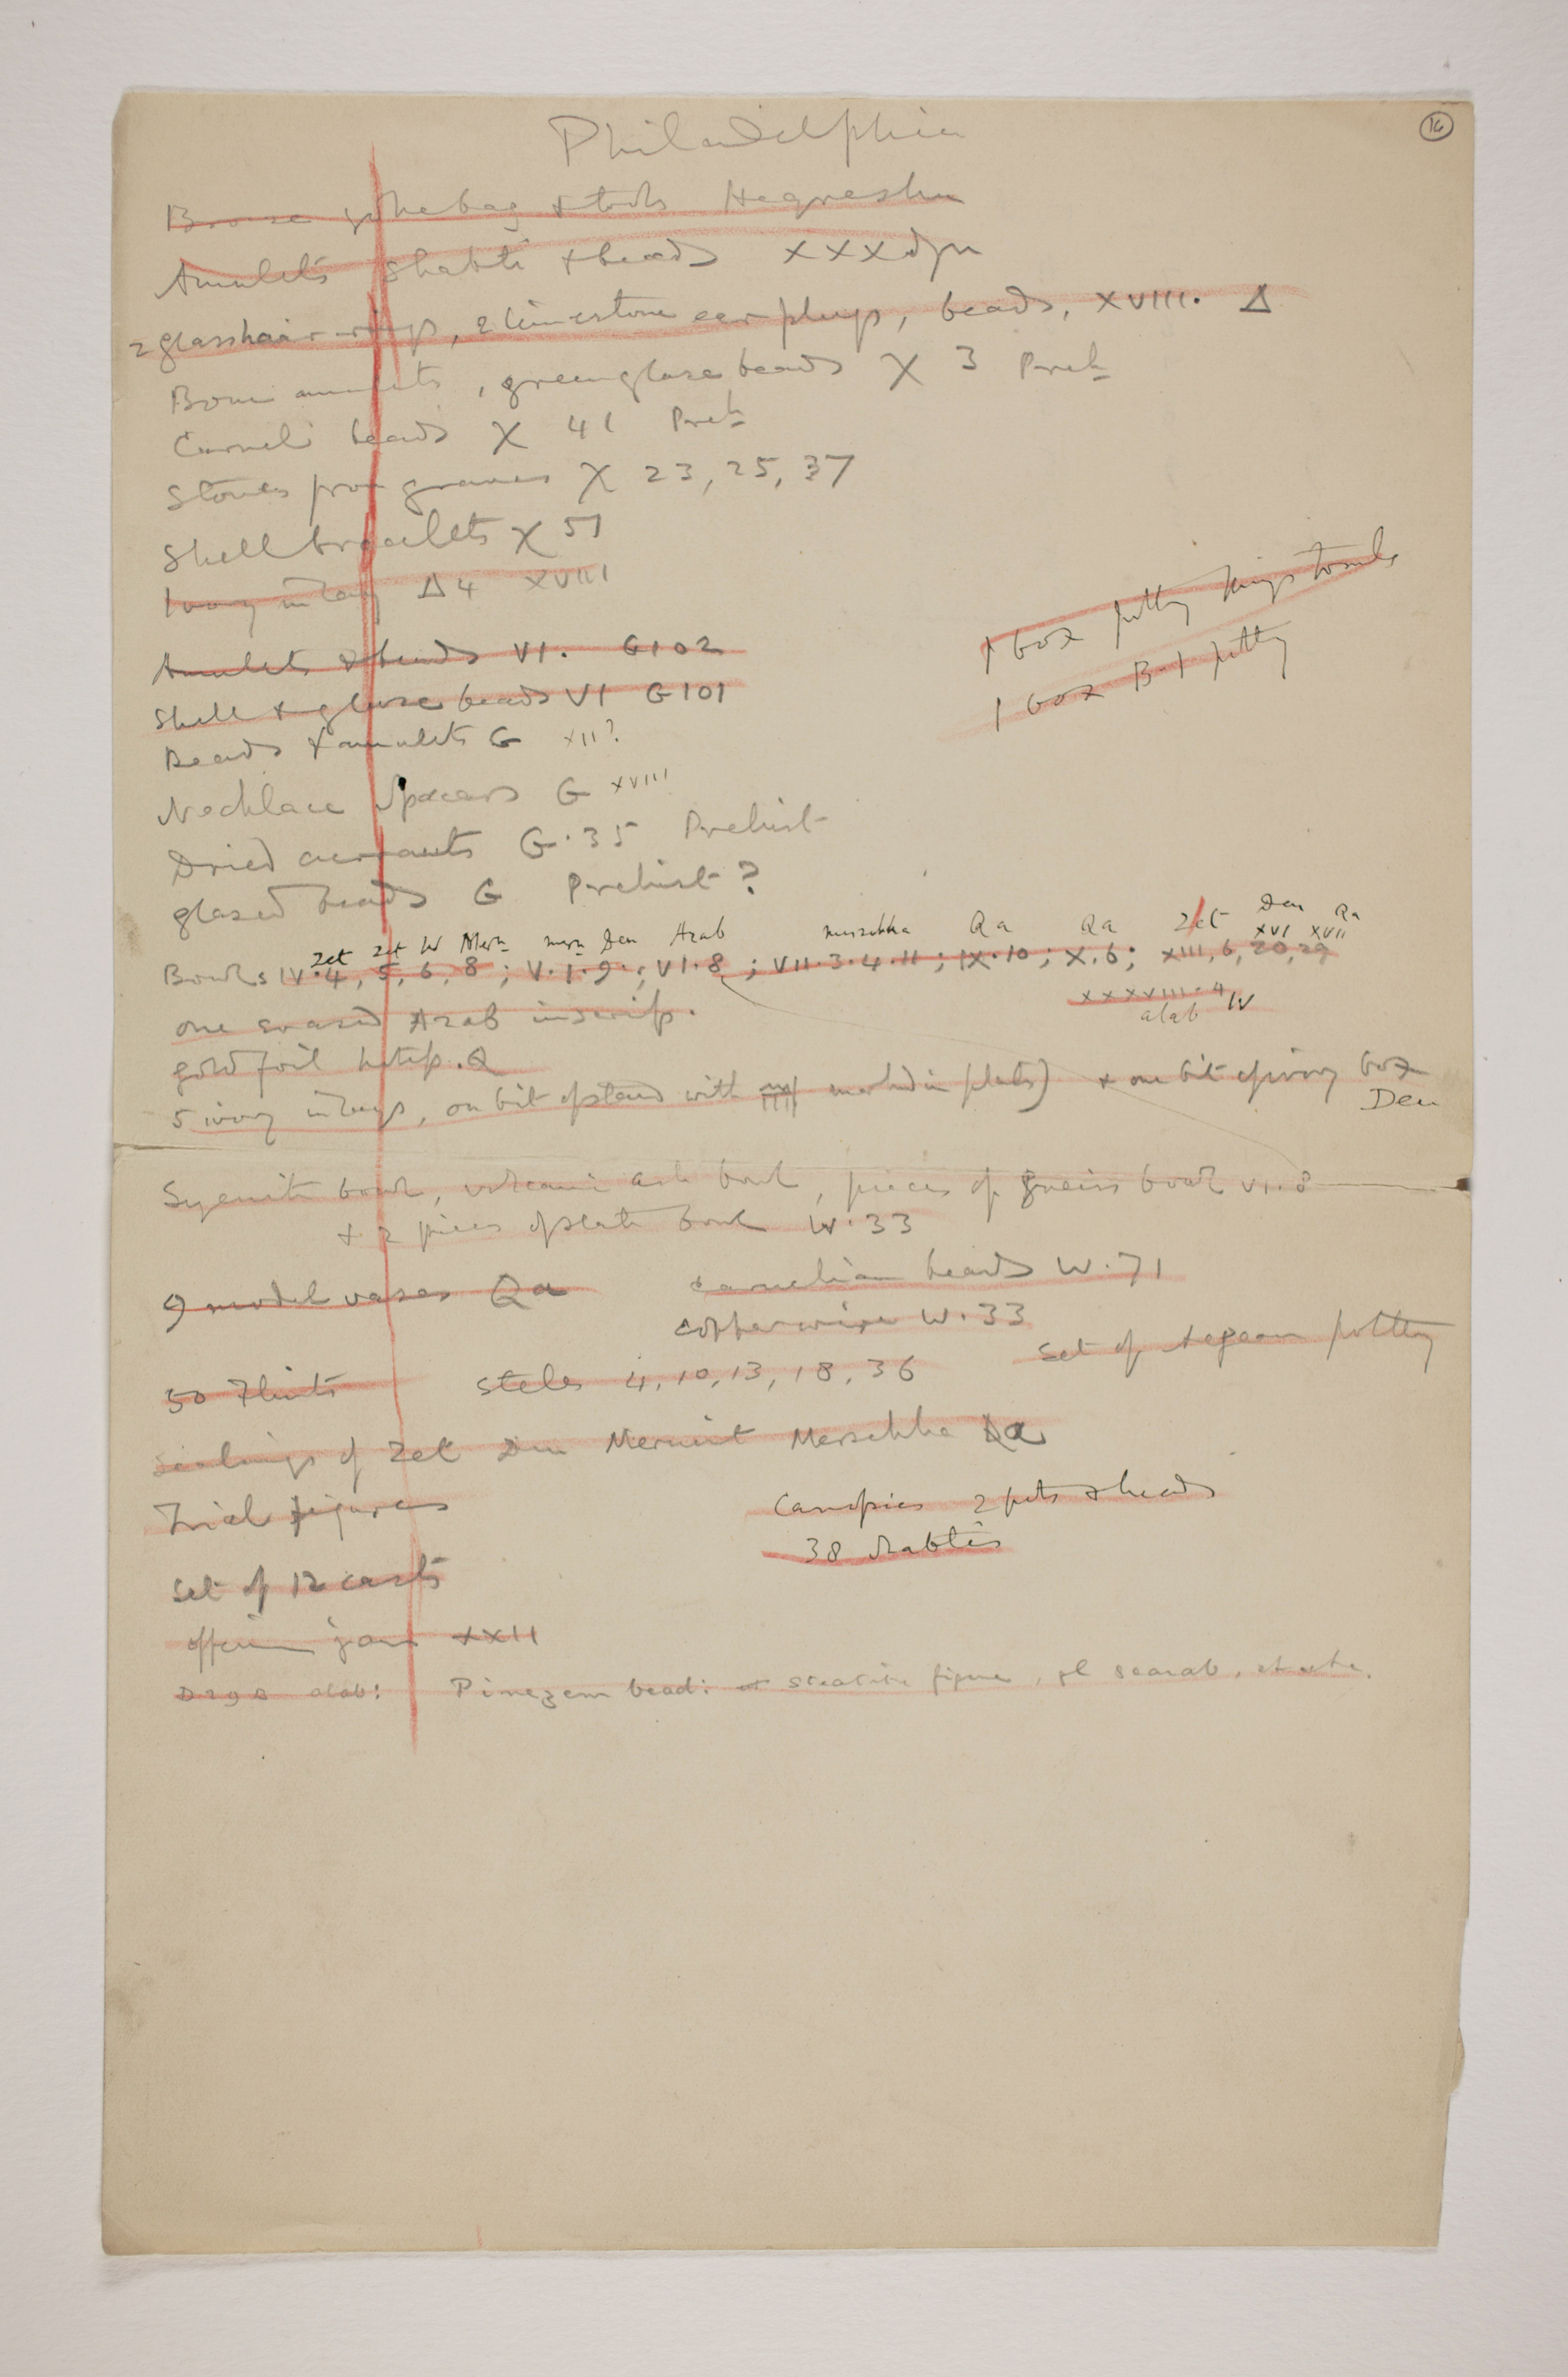 16
Philadelphia
& tools Heqreshu
Amulets Shabti & beads XXX dyn
2 glass hair rings, 2 limestone ear plugs, beads, XVIII. Δ
Bone amulets, green glaze beads X 3 Preh
Carneli beads X 41 Preh
Stones from graves X 23, 25, 37
Shell bracelets X 51
Ivory inlay Δ4 XVIII
1 box potty Kings tombs
1 box B-1 potty
Amulets & beads VI. G102
Shell & glaze beads VI G101
Beads & amulets G XII?
Necklace Spacers G XVIII
Dried currants G.35 Prehist
glazed beads G Prehist?
Zet Zet W Mern mern Den Azab Mersekha Qa Qa Zet Den Qa
XVI XVII
Bowls IV.4, 5, 6, 8; V.1.9.; VI.8; VII.3.4.11; IX.10; X.6; XIII, 6, 20, 29
XXXVIII.4 W
alab
one erased Azab inscrip.
gold foil hotep. Q
5 ivory inlays, one bit of stand with marked in plates) & one bit of ivory box
Den
Syenite bowl, volcanic ash bowl, pieces of gneiss bowl VI.8
& 2 pieces of slate bowl W.33
9 model vases Qa
carnelian beads W.71
copper wire W.33
Set of Aegean potty
50 Flints
Steles 4, 10, 13, 18, 36
Sealings of Zet Den Merneit Mersekha Qa
Trial figures
Canopics 2 pots & heads
38 shabtis
Set of 12 casts
offerin jars XXII
alab: Pinezem bead: steatite figure, gl scarab,